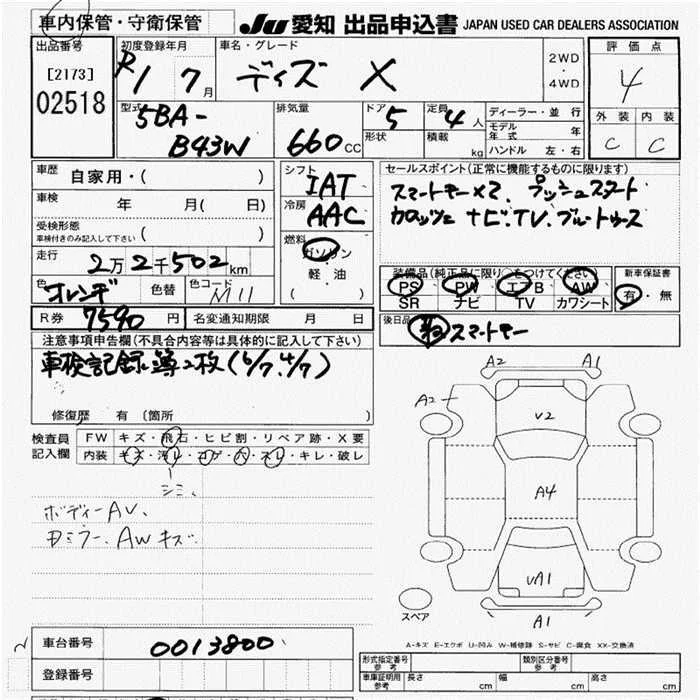 車内保管・守衛保管
JU 愛知 出品申込書 JAPAN USED CAR DEALERS ASSOCIATION
出品番号
[2173]
02518
初度登録年月
R1 7月
車名・グレード
デイズ X
2WD
・
4WD
評価点
4
型式
5BA-
B43W
排気量
660 CC
ドア 5
形状
定員 4人
積載 kg
ディーラー・並行
モデル年式 年
ハンドル 左・右
外装 内装
C C
車歴 自家用・( )
車検 年 月( 日)
受検形態
車検付きのみ記入して下さい ( )
走行 2万2千502km
色 オレンヂ 色替 色コード M11
R券 7590円 名変通知期限 月 日
シフト
IAT
冷房
AAC
燃料
ガソリン
軽油
( )
セールスポイント(正常に機能するものに限ります)
スマートキー×2、プッシュスタート
カロッツェ ナビ.TV.ブルートゥース
装備品(純正品に限り○をつけてください)
PS PW エアB AW
SR ナビ TV カワシート
新車保証書
有・無
後日品
スマートキー
注意事項申告欄(不具合内容等は具体的に記入して下さい)
車検記録簿2枚(6/7.4/7)
修復歴 有 (箇所 )
検査員
記入欄
FW キズ・飛石・ヒビ割・リペア跡・X要
内装 キズ・汚レ・コゲ・穴・スレ・キレ・破レ
シミ
ボディーAV、
ミラー、AWキズ
A2 A1
A2
V2
A4
UA1
A1
スペア
A-キズ E-エクボ U-凹み W-補修跡 S-サビ C-腐食 XX-交換済
車台番号 0013800
登録番号
形式指定番号
参考
類別区分番号
参考
車庫証明用
参考
長さ cm 幅 cm 高さ cm